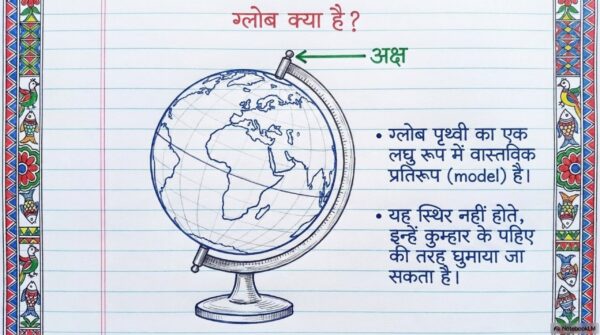 ग्लोब क्या है?
अक्ष
• ग्लोब पृथ्वी का एक
लघु रूप में वास्तविक
प्रतिरूप (model) है।
• यह स्थिर नहीं होते,
इन्हें कुम्हार के पहिए
की तरह घुमाया जा
सकता है।
NotebookLM